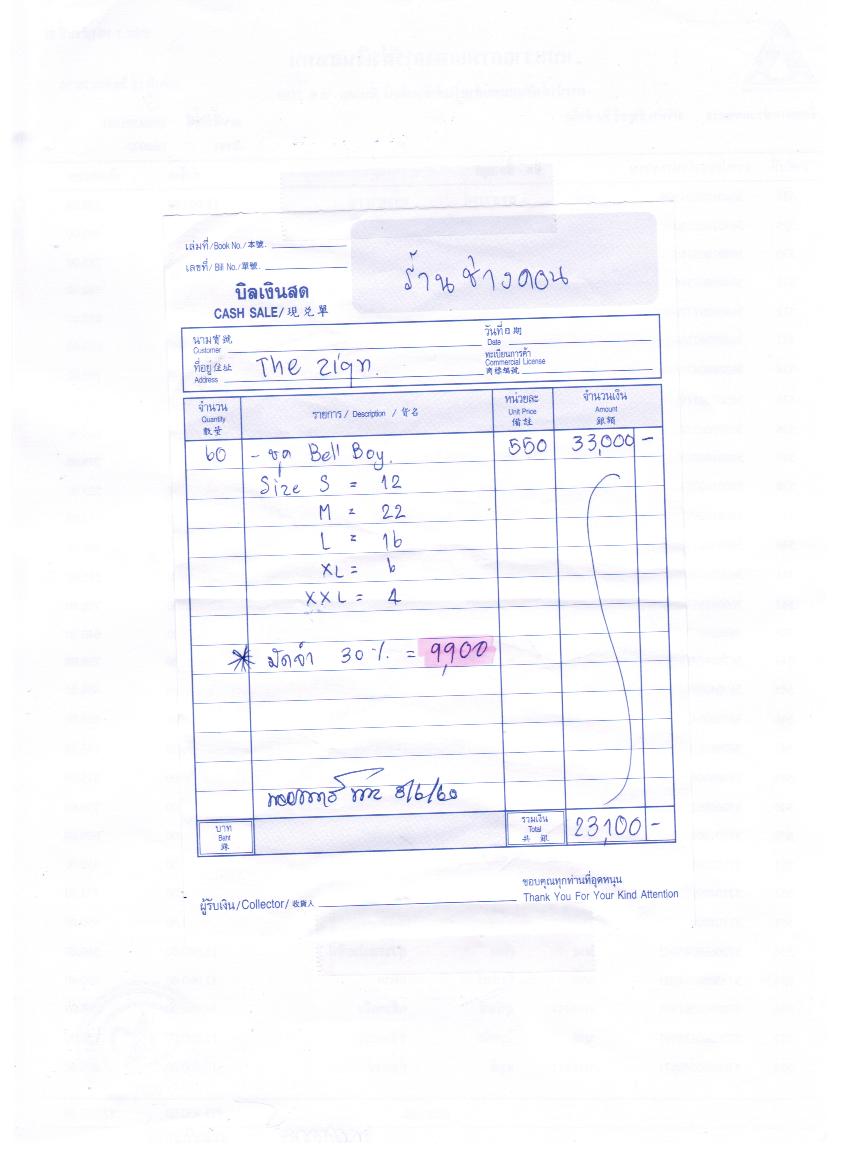 เล่มที่/Book No./本號.
เลขที่/Bill No./單號.
ร้านช่างดอน
บิลเงินสด
CASH SALE/現兑單
นาม寶號
Customer
วันที่日期
Date
ที่อยู่住址
Address
The zign.
ทะเบียนการค้า
Commercial License
商標編號
จำนวน
Quantity
數量
รายการ / Description / 貨名
หน่วยละ
Unit Price
備註
จำนวนเงิน
Amount
銀額
60 - ชุด Bell Boy. 550 33,000 -
Size S = 12
M = 22
L = 16
XL = 6
XXL = 4
* มัดจำ 30 % = 9,900
5/6/60
บาท
Baht
銖
รวมเงิน
Total
共銀
23,100 -
ผู้รับเงิน/Collector/收貨人
ขอบคุณทุกท่านที่อุดหนุน
Thank You For Your Kind Attention